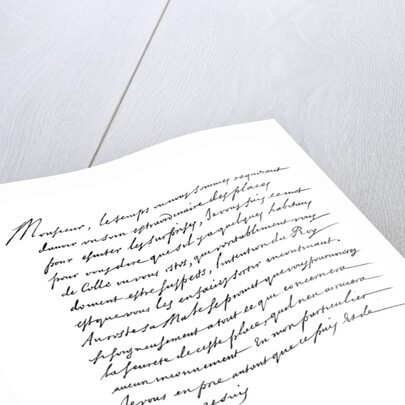 Monsieur, le temps ou nous sommes requerant
davoir un soin extraordinaire des places
pour esuiter les surprises, Je vous fais ce mot
pour vous dire que sil ya quelques habitans
de Celle ou vous estes, qui veritablement vous
doiuent estre suspects, l'intention du Roy
est que vous les en faciez sortir incontinant.
Au reste sa Maté se promet que vous pouruoirez
si soigneusement a tout ce qui concernera
la seureté de ceste place, quil nen arriuera
aucun inconuenient. En mon particulier
Je vous en prie autant que je puis et de